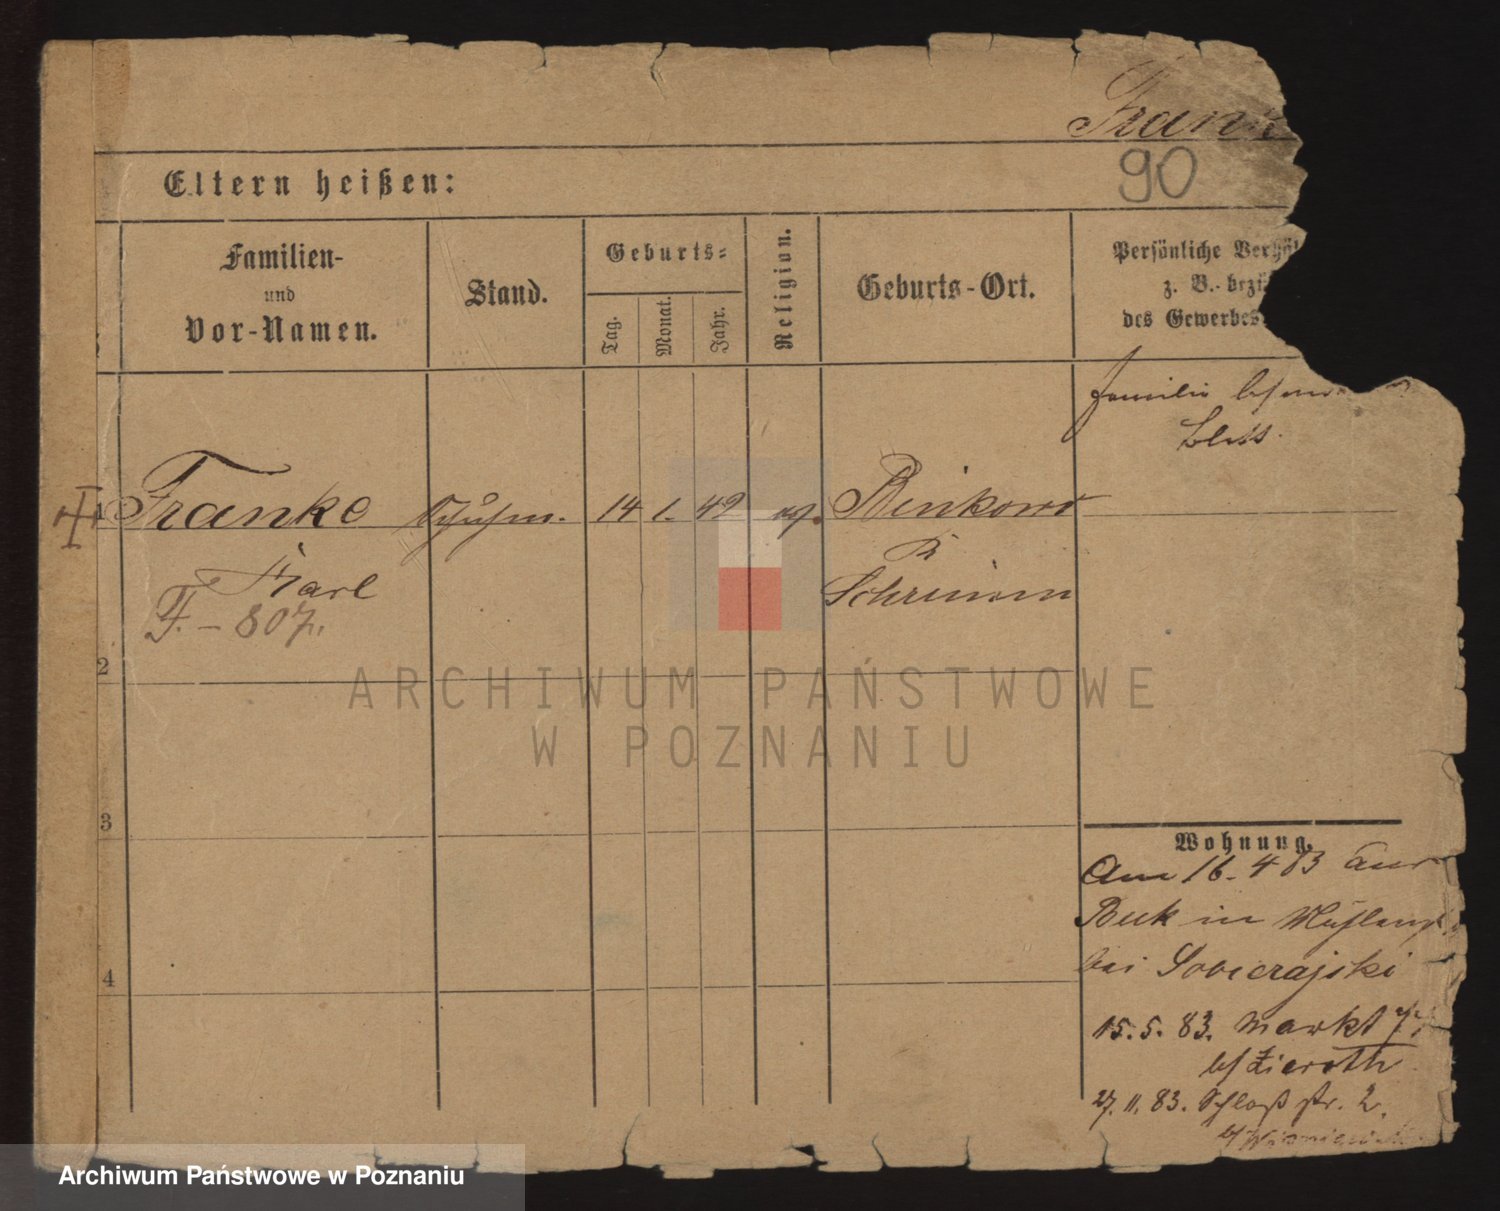 Fran
90
Eltern heißen:
Familien-
und
Vor-Namen.
Stand.
Geburts-
Tag.
Monat.
Jahr.
Religion.
Geburts-Ort.
Persönliche Verhäl
z. B. bezü
des Gewerbes
Familie
1 Franke Schuhm. 14 1. 49 Binkowo
Kr
Karl Schrimm
F. - 807.
2
3
4
Wohnung.
Am 16. 4 83 aus
Buk in
bei Sobierajski
15. 5. 83. Markt
b/ Zieroth
27. 11. 83. Schloß str. 2.
b/
ARCHIWUM PAŃSTWOWE
W POZNANIU
Archiwum Państwowe w Poznaniu